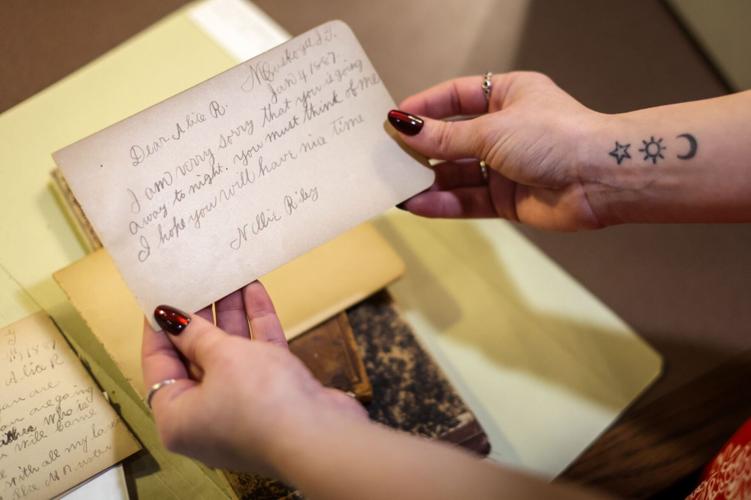 Muskogee I.T.
Jan 4, 1887.
Dear Alice R.
I am verry sorry that you is going
away to night. you must think of me
I hope you will have nice time
Nellie Riley
1887
Alice R
are
are going
who is
will come
with all my love
Alice M.